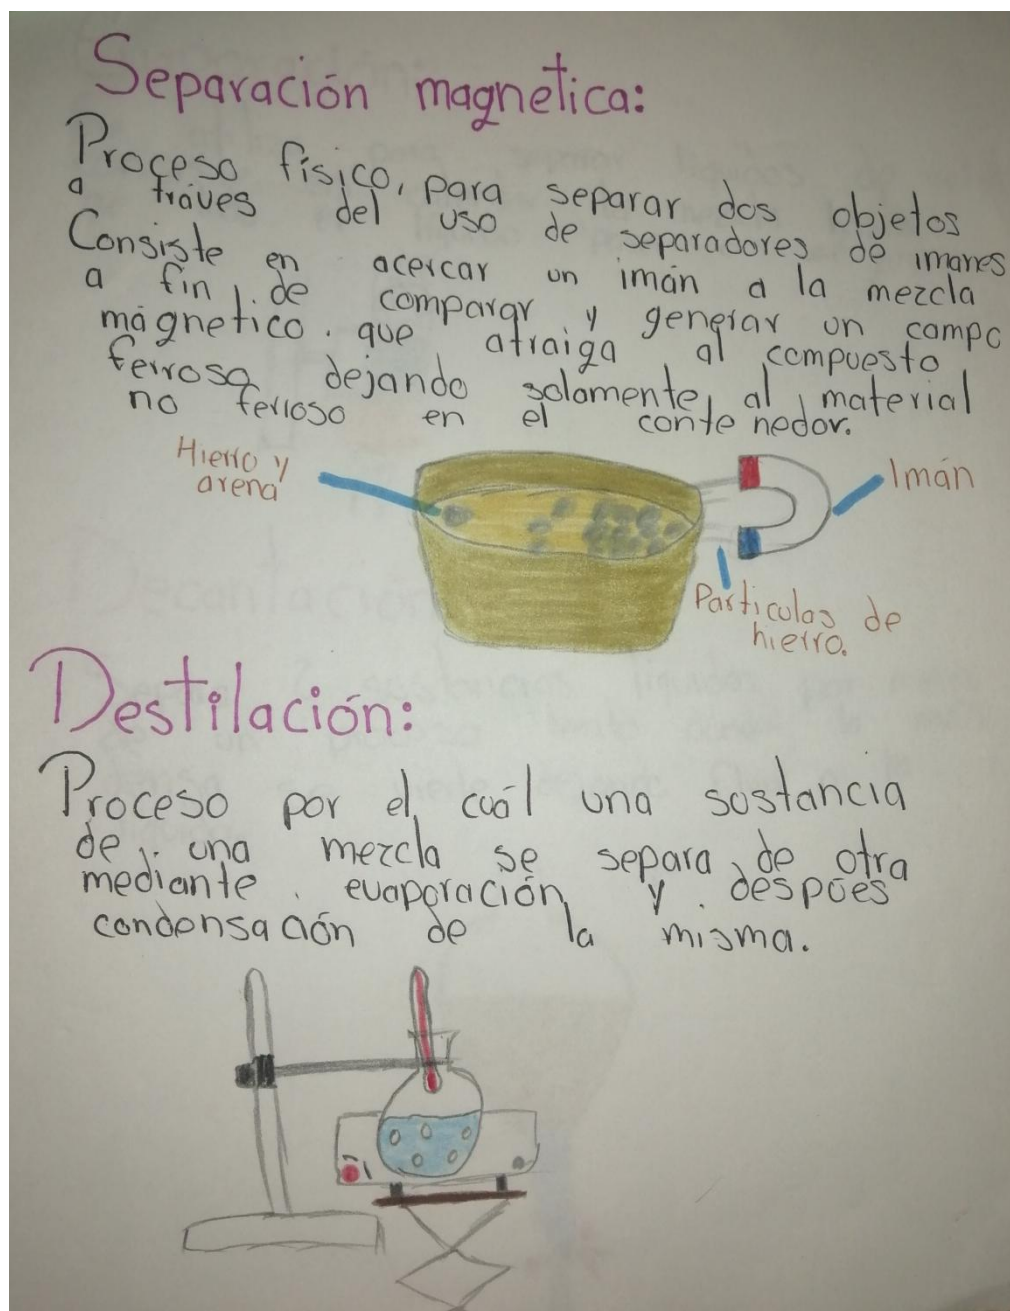 Separación magnetica:
Proceso físico, para separar dos objetos
a tráves del uso de separadores de imanes
Consiste en acercar un imán a la mezcla
a fin de comparar y generar un campo
mágnetico que atraiga al compuesto
ferroso dejando solamente al material
no ferroso en el contenedor.
Hierro y
arena
Imán
Particulas de
hierro.
Destilación:
Proceso por el cuál una sostancia
de una mezcla se separa de otra
mediante evaporación y despoés
condensación de la misma.